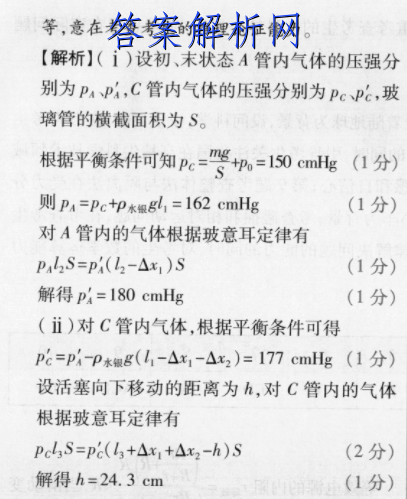 等,意在考查考生的推理论证能力。
答案解析网
【解析】(ⅰ)设初、末状态 A 管内气体的压强分
别为 p_A、p'_A,C 管内气体的压强分别为 p_C、p'_C,玻
璃管的横截面积为 S。
根据平衡条件可知 p_C=mg/S+p_0=150 cmHg (1 分)
则 p_A=p_C+ρ_水银gl_1=162 cmHg (1 分)
对 A 管内的气体根据玻意耳定律有
p_Al_2S=p'_A(l_2-Δx_1)S (1 分)
解得 p'_A=180 cmHg (1 分)
(ⅱ)对 C 管内气体,根据平衡条件可得
p'_C=p'_A-ρ_水银g(l_1-Δx_1-Δx_2)=177 cmHg (1 分)
设活塞向下移动的距离为 h,对 C 管内的气体
根据玻意耳定律有
p_Cl_3S=p'_C(l_3+Δx_1+Δx_2-h)S (2 分)
解得 h=24.3 cm (1 分)